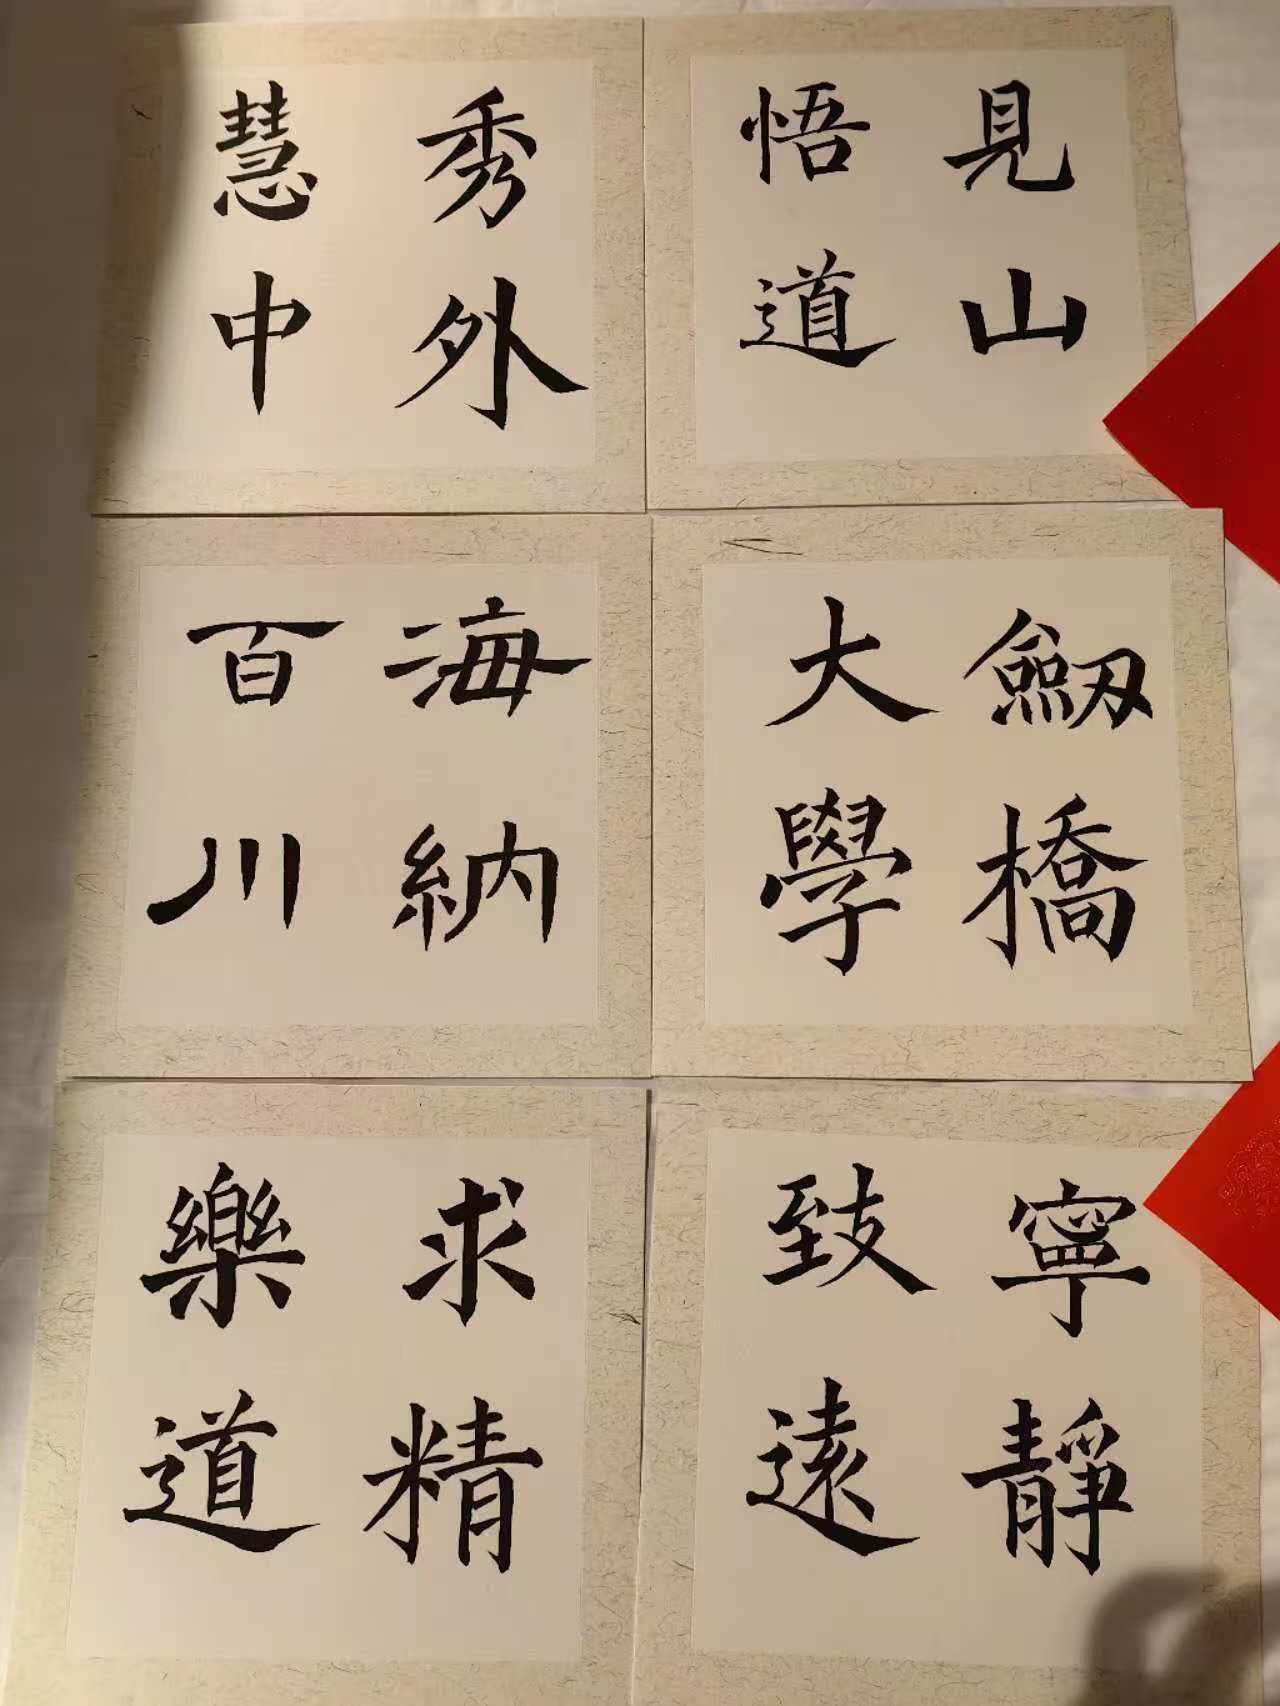 見山
悟道
秀外
慧中
劔橋
大學
海納
百川
寧靜
致遠
求精
樂道